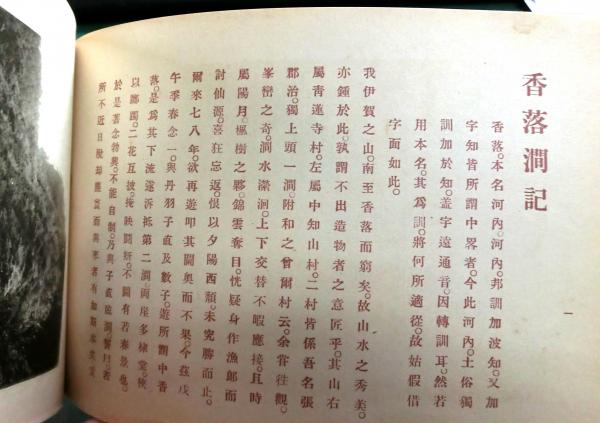 香落澗記
香落。本名河內。河內。邦訓加波知。又加
字知皆所謂中畧者。今此河內。土俗獨
訓加於知。蓋字遠通音。因轉訓耳。然若
用本名。其爲訓。將何所適從。故姑假借
字面如此。
我伊賀之山。南至香落而窮矣。故山水之秀美。
亦鍾於此。孰謂不出造物者之意匠乎。其山右
屬靑蓮寺村。左屬中知山村。二村皆係吾名張
郡治。獨上頭一澗。附和之曾爾村云。余甞往觀。
峯巒之奇。澗水瀠洄。上下交替不暇應接。且時
屬陽月。楓樹之夥。錦雲奪目。恍疑身作漁郎而
討仙源。喜狂忘返。恨以夕陽西頽。未究勝而止。
爾來七八年。欲再遊叩其閫奧而不果。今玆戊
午季春念一。與丹羽子直及數子。遊所謂中香
落。是爲其下流。遂泝抵第二澗。兩崖多棣棠。俠
以躑躅。二花互披。掩映鬪姸。不圖有若春景也。
於是著念勃興。不能自制。乃與子直
所不近日脫却塵
一